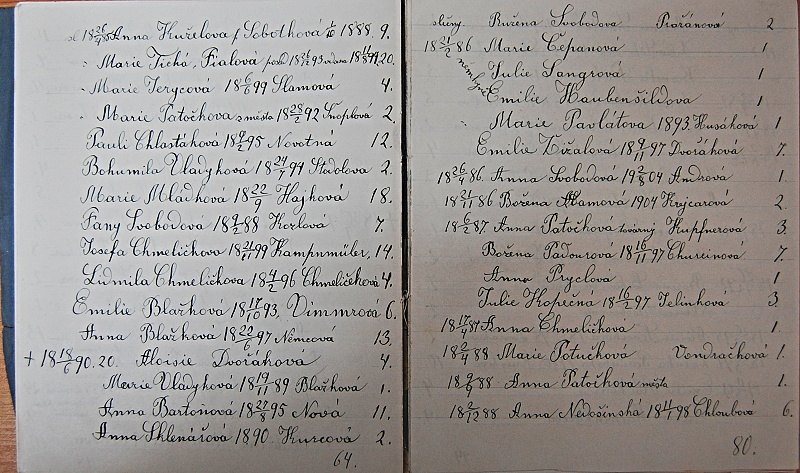 18 26/4 85 Anna Kuželova, Sobotková 1888. 9.
" Marie Tichá, Fialová 20.
" Marie Jerycová 18 6/6 99 Slamová 4.
" Marie Patočkova z města 18 28/2 92 Šnoplová 2.
Pauli Chlastáková 18 9/2 95 Novotná 12.
Bohumila Vladyková 18 24/4 99 2.
Marie Mládková 18 22/9 Hájková 18.
Fany Svobodová 18 9/2 88 Kozlová 7.
Josefa Chmeličkova 18 21/11 99 Kampnmüler, 14.
Ludmila Chmeličkova 18 4/2 96 Chmeličeková 4.
Emilie Blažková 18 17/10 93, Vimmrová 6.
Anna Blažková 18 22/6 97 Němcová 13.
+ 18 18/6 90. 20. Aloisie Dvořáková 4.
Marie Vladyková 18 19/11 89 Blažková 1.
Anna Bartoňová 18 27/8 95 Nová 11.
Anna Sklenářová 1890. Kurcová 2.
64.
služny. Růžena Svobodova 2
18 21/2 86 Marie Čepanová 1
Julie Langrová 1
Emilie Haubenšildova 1
" Marie Pavlátova 1893. Husáková 1
Emilie Žižalová 18 9/11 97 Dvořáková 7.
18 26/4 86. Anna Svobodová 19 2/8 04 Andrová 1.
18 21/11 86 Božena Adamová 1904 Krejcarová 2.
18 6/2 87 Anna Patočková Kupfnerová 3.
Božena Paďourová 18 16/11 97 7.
Anna Pryclová 1
Julie Kopečná 18 16/2 97 Jelinková 3.
18 17/4 87 Anna Chmeličková 1.
18 2/4 88 Marie Potučková Vondračková 1.
18 9/9 88 Anna Patočková města 1.
18 2/12 88 Anna Nedošinská 18 11/1 98 Chloubová 6.
80.